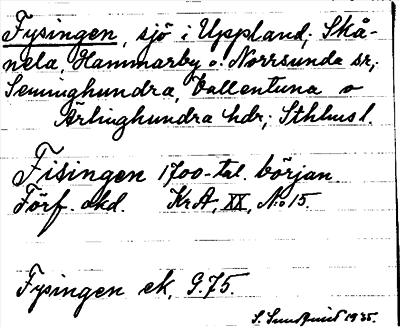 Fysingen, sjö i Uppland; Skå-
nela, Hammarby o. Norrsunda sr;
Seminghundra, Vallentuna o
Ärlinghundra hdr; Sthlms l.
Fisingen 1700-tal. början.
Förf. okd. KrA, XX, No 15.
Fysingen ek. G.75.
S. Sundquist 1935.